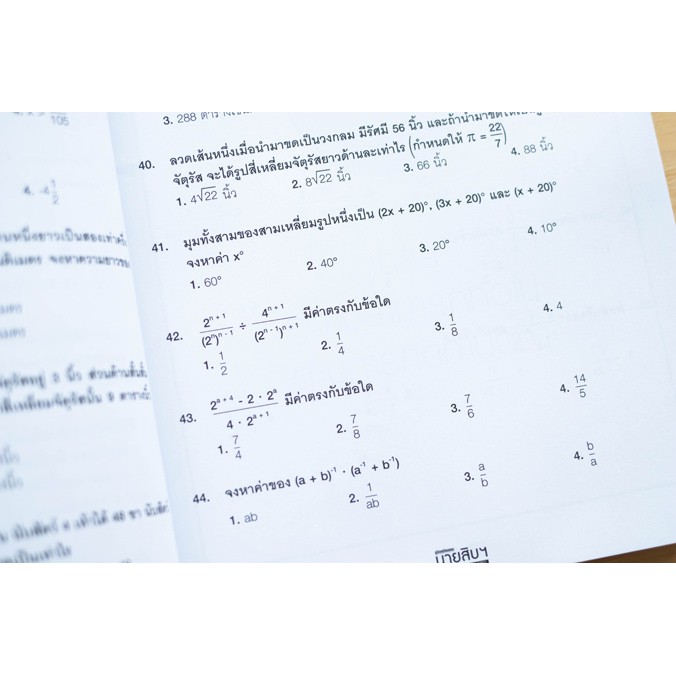 105
4. -4 1/2
3. 288
40. ลวดเส้นหนึ่งเมื่อนำมาขดเป็นวงกลม มีรัศมี 56 นิ้ว และถ้านำมาขด
จัตุรัส จะได้รูปสี่เหลี่ยมจัตุรัสยาวด้านละเท่าไร (กำหนดให้ π = 22/7)
1. 4√22 นิ้ว 2. 8√22 นิ้ว 3. 66 นิ้ว 4. 88 นิ้ว
41. มุมทั้งสามของสามเหลี่ยมรูปหนึ่งเป็น (2x + 20)°, (3x + 20)° และ (x + 20)°
จงหาค่า x°
1. 60° 2. 40° 3. 20° 4. 10°
42. 2ⁿ⁺¹/(2ⁿ)ⁿ⁻¹ ÷ 4ⁿ⁺¹/(2ⁿ⁻¹)ⁿ⁺¹ มีค่าตรงกับข้อใด
1. 1/2 2. 1/4 3. 1/8 4. 4
43. (2ᵃ⁺⁴ - 2 · 2ᵃ)/(4 · 2ᵃ⁺¹) มีค่าตรงกับข้อใด
1. 7/4 2. 7/8 3. 7/6 4. 14/5
44. จงหาค่าของ (a + b)⁻¹ · (a⁻¹ + b⁻¹)
1. ab 2. 1/ab 3. a/b 4. b/a
นายสิบฯ